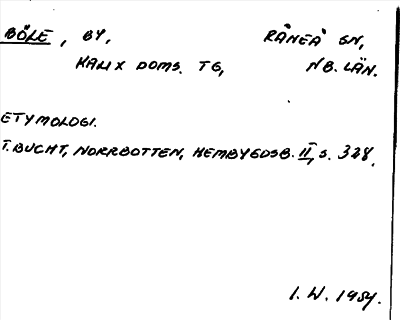 BÖLE, BY, RÅNEÅ SN,
KALIX DOMS. TG, NB. LÄN.
ETYMOLOGI.
T. BUCHT, NORRBOTTEN, HEMBYGDSB. II, S. 328.
I. W. 1954.